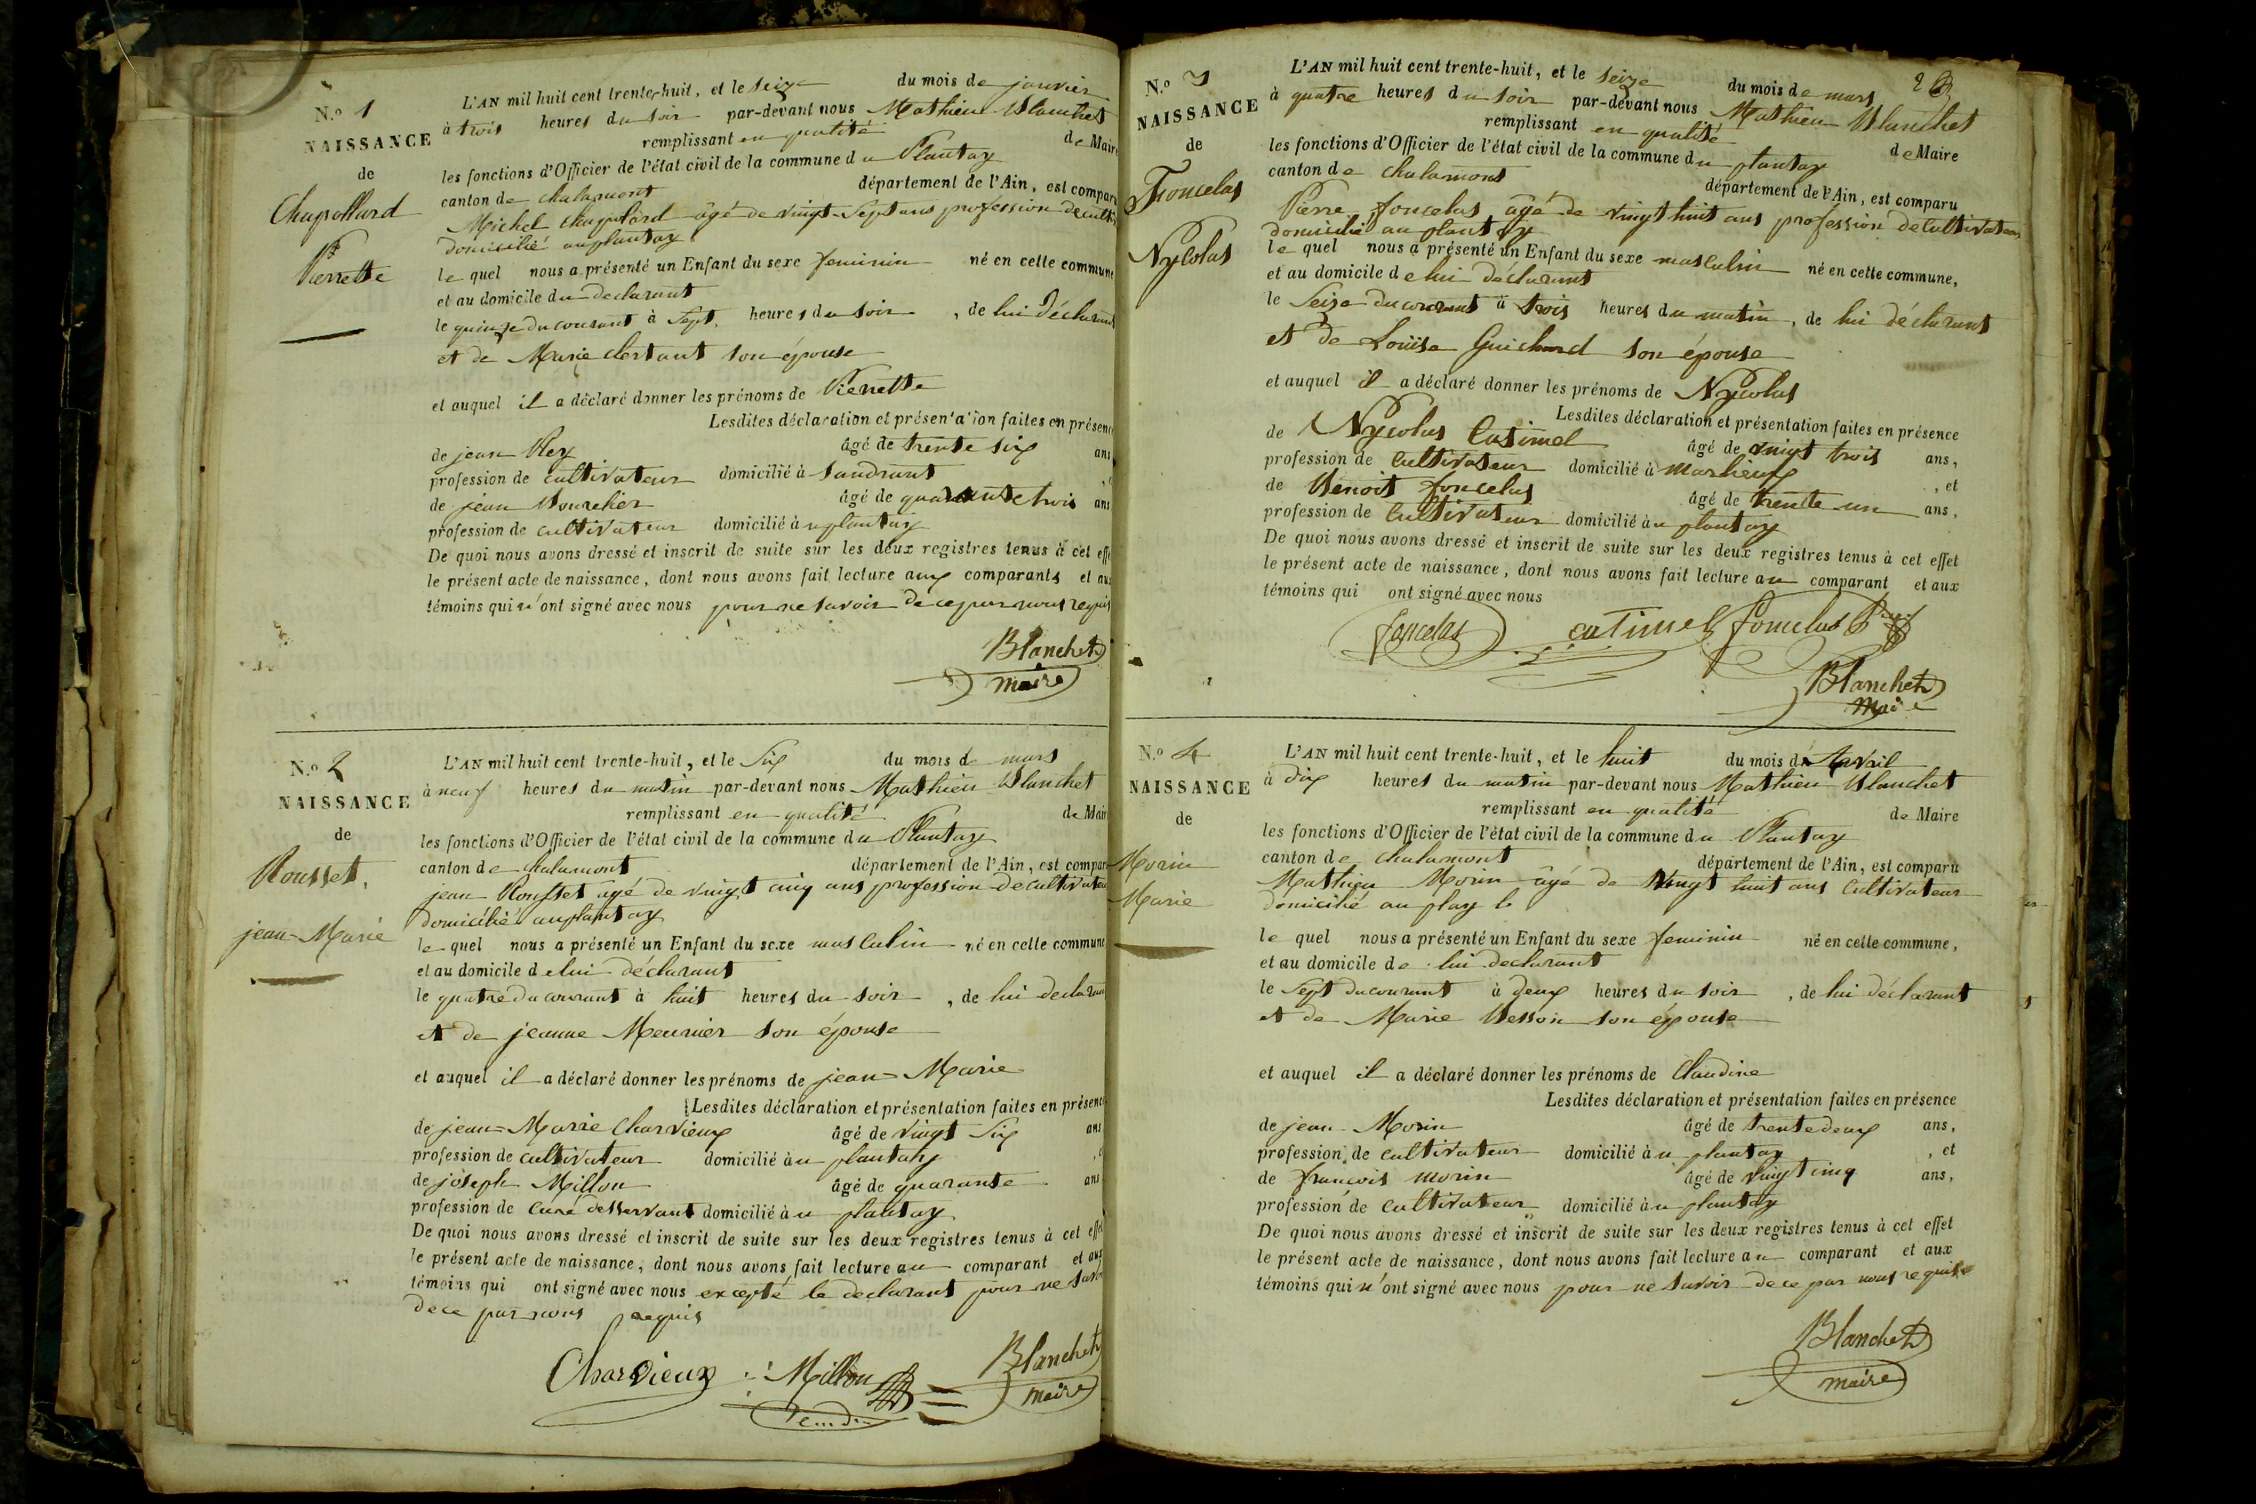 N.o 1
NAISSANCE
de
Chapollard
Pierrette
L'AN mil huit cent trente-huit, et le seize du mois de janvier
à trois heures du soir par-devant nous Mathieu Blanchet
remplissant en qualité de Maire
les fonctions d'Officier de l'état civil de la commune du Plantay
canton de chalamont département de l'Ain, est comparu
Michel Chapolard âgé de vingt-sept ans profession de
domicilié au plantay
le quel nous a présenté un Enfant du sexe feminin né en cette commune
et au domicile du declarant
le quinze du courant à sept heures du soir, de lui déclarant
et de Marie son épouse
et auquel il a déclaré donner les prénoms de Pierrette
Lesdites déclaration et présentation faites en présence
de jean Rey âgé de trente six ans
profession de cultivateur domicilié à Sandrant
de jean Bourchier âgé de quarante trois ans
profession de cultivateur domicilié à u plantay
De quoi nous avons dressé et inscrit de suite sur les deux registres tenus à cet effe
le présent acte de naissance, dont nous avons fait lecture aux comparants et aux
témoins qui n'ont signé avec nous pour ne savoir de ce par nous requis
Blanchet
maire
N.o 2
NAISSANCE
de
Rousset,
jean-Marie
L'AN mil huit cent trente-huit, et le six du mois de mars
à neuf heures du matin par-devant nous Mathieu Blanchet
remplissant en qualité de Mair
les fonctions d'Officier de l'état civil de la commune du Plantay
canton de chalamont département de l'Ain, est compar
jean Rousset agé de vingt cinq ans profession de cultivateu
domicilié au plantay
le quel nous a présenté un Enfant du sexe masculin né en cette commune
et au domicile de lui déclarant
le quatre du courant à huit heures du soir, de lui declaran
et de jeanne Meunier son épouse
et auquel il a déclaré donner les prénoms de jean=Marie
Lesdites déclaration et présentation faites en présence
de jean=Marie Charvieux âgé de vingt six ans
profession de cultivateur domicilié à u plantay
de joseph Millon âgé de quarante ans
profession de curé desservant domicilié à u plantay
De quoi nous avons dressé et inscrit de suite sur les deux registres tenus à cet effet
le présent acte de naissance, dont nous avons fait lecture au comparant et aux
témoins qui ont signé avec nous excepté le declarant pour ne savoir
de ce par nous requis
Charvieux Millon Blanchet
maire
N.o 3
NAISSANCE
de
Foncelas
Nycolas
2
L'AN mil huit cent trente-huit, et le seize du mois de mars
à quatre heures du soir par-devant nous Mathieu Blanchet
remplissant en qualité de Maire
les fonctions d'Officier de l'état civil de la commune du plantay
canton de chalamont département de l'Ain, est comparu
Pierre foncelas âgé de vingt huit ans profession de Cultivateur
domicilié au plantay
le quel nous a présenté un Enfant du sexe masculin né en cette commune,
et au domicile de lui déclarant
le Seize du courant à trois heures du matin, de lui déclarant
et de Louise Guichard son épouse
et auquel il a déclaré donner les prénoms de Nycolas
Lesdites déclaration et présentation faites en présence
de Nycolas Catimel âgé de vingt trois ans,
profession de Cultivateur domicilié à Marlieux, et
de Benoit foncelas âgé de trente un ans,
profession de Cultivateur domicilié à u plantay
De quoi nous avons dressé et inscrit de suite sur les deux registres tenus à cet effet
le présent acte de naissance, dont nous avons fait lecture au comparant et aux
témoins qui ont signé avec nous
foncelas caTimel foncelas
Blanchet
Maire
N.o 4
NAISSANCE
de
Morin
Marie
L'AN mil huit cent trente-huit, et le huit du mois d'Avril
à dix heures du matin par-devant nous Mathieu Blanchet
remplissant en qualité de Maire
les fonctions d'Officier de l'état civil de la commune du Plantay
canton de chalamont département de l'Ain, est comparu
Mathieu Morin âgé de Vingt huit ans Cultivateur
domicilié au
le quel nous a présenté un Enfant du sexe feminin né en cette commune,
et au domicile de lui declarant
le sept du courant à deux heures du soir, de lui déclarant
et de Marie Besson son épouse
et auquel il a déclaré donner les prénoms de Claudine
Lesdites déclaration et présentation faites en présence
de jean Morin âgé de trente deux ans,
profession de cultivateur domicilié à u plantay, et
de françois Morin âgé de vingt cinq ans,
profession de cultivateur domicilié à u plantay
De quoi nous avons dressé et inscrit de suite sur les deux registres tenus à cet effet
le présent acte de naissance, dont nous avons fait lecture au comparant et aux
témoins qui n'ont signé avec nous pour ne savoir de ce par nous requis
Blanchet
maire